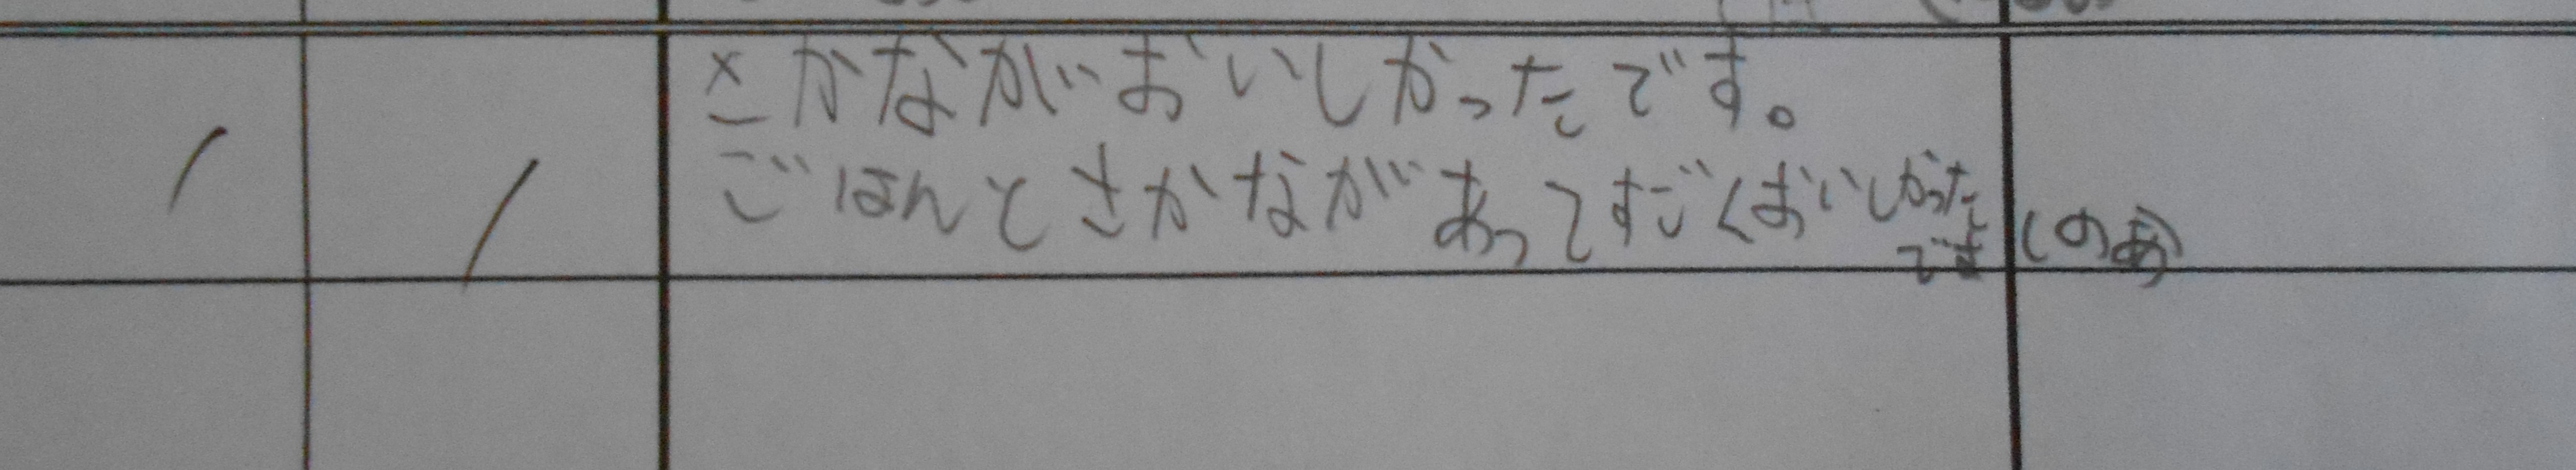 さかながおいしかったです。
ごはんとさかながあってすごくおいしかった
です
(のあ)